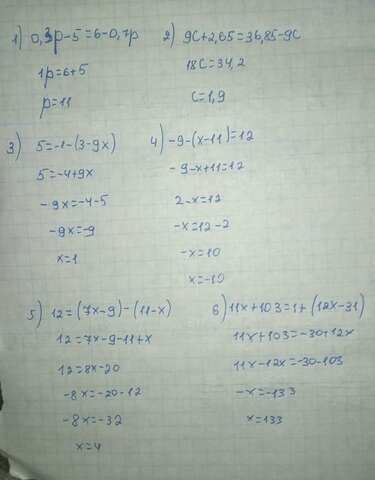 1) 0,3p-5=6-0,7p
1p=6+5
p=11
2) 9c+2,65=36,85-9c
18c=34,2
c=1,9
3) 5=-1-(3-9x)
5=-4+9x
-9x=-4-5
-9x=-9
x=1
4) -9-(x-11)=12
-9-x+11=12
2-x=12
-x=12-2
-x=10
x=-10
5) 12=(7x-9)-(11-x)
12=7x-9-11+x
12=8x-20
-8x=-20-12
-8x=-32
x=4
6) 11x+103=1+(12x-31)
11x+103=-30+12x
11x-12x=-30-103
-x=-133
x=133